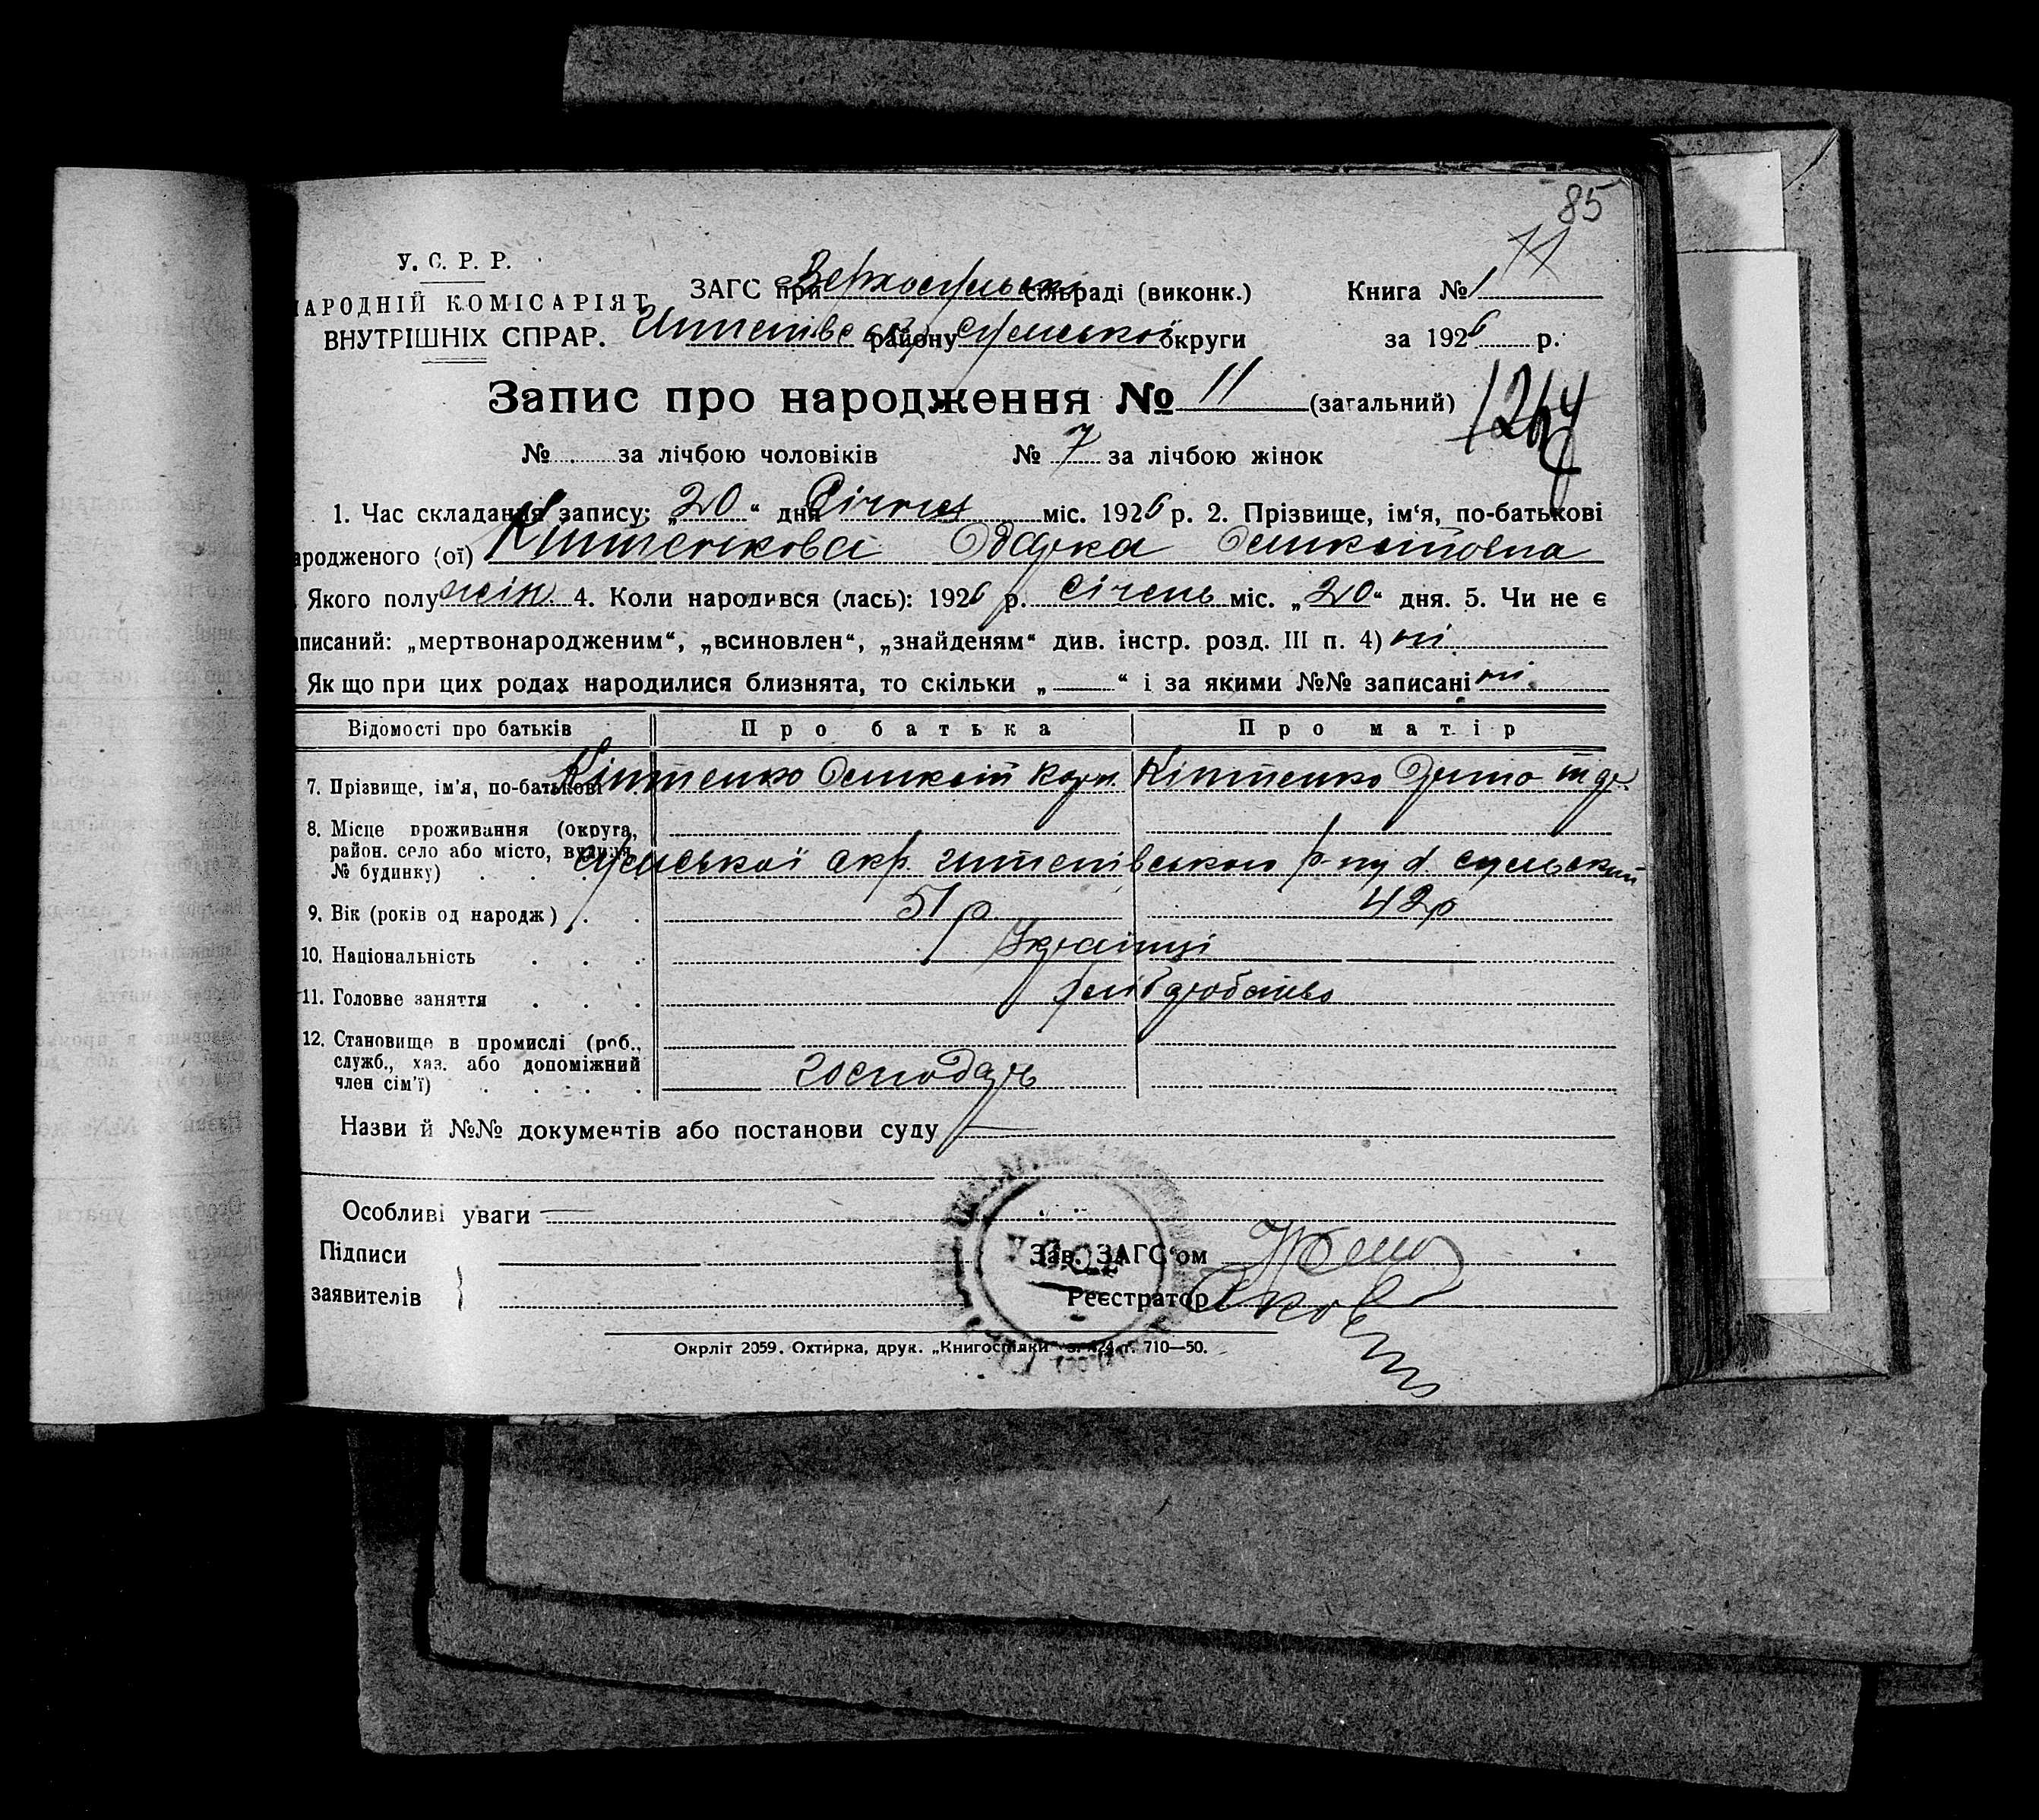 85
11
У. С. Р. Р.
НАРОДНІЙ КОМІСАРІЯТ
ВНУТРІШНІХ СПРАР.
ЗАГС при Верхосульськ сільраді (виконк.)
Книга № 1
району Сумської округи
за 1926 р.
Запис про народження № 11 (загальний)
1264
№ за лічбою чоловіків № 7 за лічбою жінок
1. Час складання запису: „20“ дня Січня міс. 1926 р. 2. Прізвище, ім‘я, по-батькові
ародженого (ої) Одарка
Якого полу жін. 4. Коли народився (лась): 1926 р. Січень міс. „20“ дня. 5. Чи не є
аписаний: „мертвонародженим“, „всиновлен“, „знайденям“ див. інстр. розд. III п. 4) ні
Якщо при цих родах народилися близнята, то скільки „ “ і за якими №№ записані ні.
Відомості про батьків Про батька Про матір
7. Прізвище, ім‘я, по-батькові
8. Місце проживання (округа,
район. село або місто, вулиця,
№ будинку)
Сумської окр. р-ну
9. Вік (років од народж) 51 р 42 р
10. Національність Українці
11. Головне заняття хліборобство
12. Становище в промислі (роб.,
служб., хаз. або допоміжний
член сім‘ї)
господарь
Назви й №№ документів або постанови суду
Особливі уваги
Підписи
заявителів
Зав. ЗАГС‘ом
Реєстратор
Окрліт 2059. Охтирка, друк. „Книгоспілки“ 710—50.